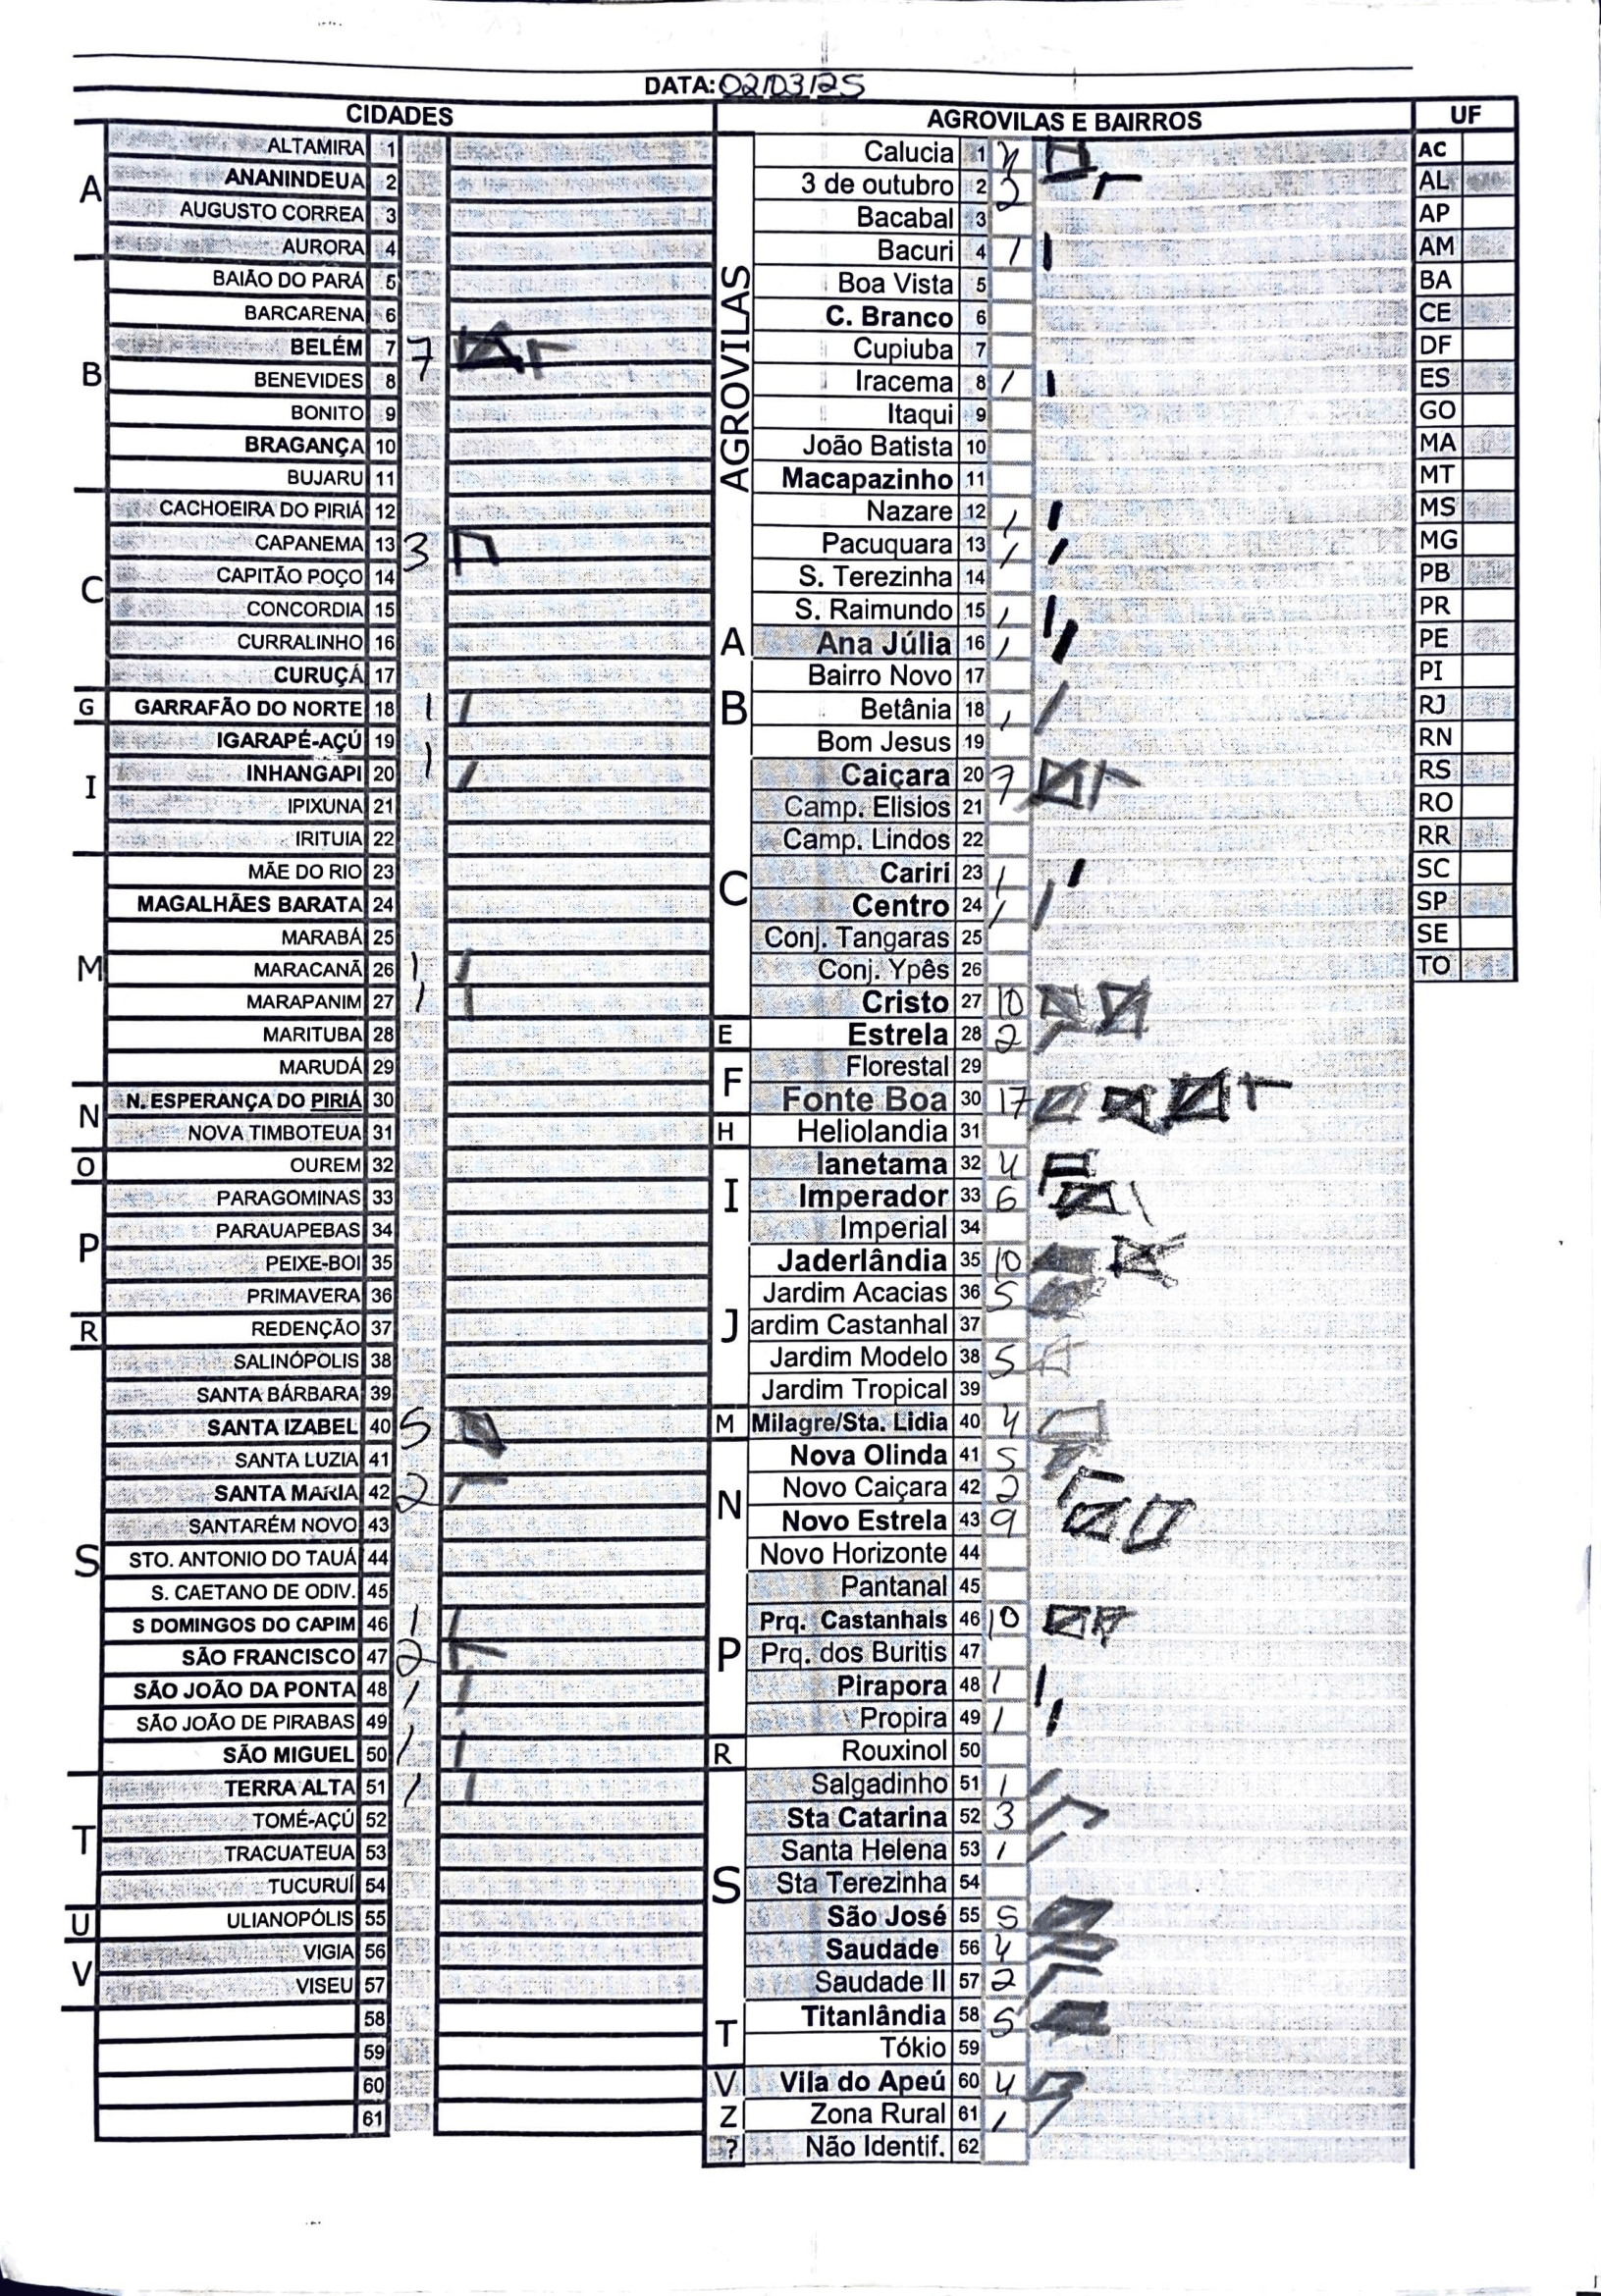 DATA: 02/03/25
CIDADES
A
ALTAMIRA 1
ANANINDEUA 2
AUGUSTO CORREA 3
AURORA 4
B
BAIÃO DO PARÁ 5
BARCARENA 6
BELÉM 7 7
BENEVIDES 8
BONITO 9
BRAGANÇA 10
BUJARU 11
C
CACHOEIRA DO PIRIÁ 12
CAPANEMA 13 3
CAPITÃO POÇO 14
CONCORDIA 15
CURRALINHO 16
CURUÇÁ 17
G
GARRAFÃO DO NORTE 18 1
I
IGARAPÉ-AÇÚ 19
INHANGAPI 20 1
IPIXUNA 21
IRITUIA 22
M
MÃE DO RIO 23
MAGALHÃES BARATA 24
MARABÁ 25
MARACANÃ 26 1
MARAPANIM 27 1
MARITUBA 28
MARUDÁ 29
N
N. ESPERANÇA DO PIRIÁ 30
NOVA TIMBOTEUA 31
O
OUREM 32
P
PARAGOMINAS 33
PARAUAPEBAS 34
PEIXE-BOI 35
PRIMAVERA 36
R
REDENÇÃO 37
S
SALINÓPOLIS 38
SANTA BÁRBARA 39
SANTA IZABEL 40 5
SANTA LUZIA 41
SANTA MARIA 42 2
SANTARÉM NOVO 43
STO. ANTONIO DO TAUÁ 44
S. CAETANO DE ODIV. 45
S DOMINGOS DO CAPIM 46 1
SÃO FRANCISCO 47 2
SÃO JOÃO DA PONTA 48 1
SÃO JOÃO DE PIRABAS 49
SÃO MIGUEL 50 1
T
TERRA ALTA 51 1
TOMÉ-AÇÚ 52
TRACUATEUA 53
TUCURUÍ 54
U
ULIANOPÓLIS 55
V
VIGIA 56
VISEU 57
58
59
60
61
AGROVILAS E BAIRROS
AGROVILAS
Calucia 1 4
3 de outubro 2 2
Bacabal 3
Bacuri 4 1
Boa Vista 5
C. Branco 6
Cupiuba 7
Iracema 8 1
Itaqui 9
João Batista 10
Macapazinho 11
Nazare 12 1
Pacuquara 13 1
S. Terezinha 14
S. Raimundo 15 1
A
Ana Júlia 16 1
B
Bairro Novo 17
Betânia 18 1
Bom Jesus 19
C
Caiçara 20 7
Camp. Elisios 21
Camp. Lindos 22
Cariri 23 1
Centro 24 1
Conj. Tangaras 25
Conj. Ypês 26
Cristo 27 10
E
Estrela 28 2
F
Florestal 29
Fonte Boa 30 17
H
Heliolandia 31
I
Ianetama 32 4
Imperador 33 6
Imperial 34
J
Jaderlândia 35 10
Jardim Acacias 36 5
ardim Castanhal 37
Jardim Modelo 38 5
Jardim Tropical 39
M
Milagre/Sta. Lidia 40 4
N
Nova Olinda 41 5
Novo Caiçara 42 2
Novo Estrela 43 9
Novo Horizonte 44
P
Pantanal 45
Prq. Castanhais 46 10
Prq. dos Buritis 47
Pirapora 48 1
Propira 49 1
R
Rouxinol 50
S
Salgadinho 51 1
Sta Catarina 52 3
Santa Helena 53 1
Sta Terezinha 54
São José 55 5
Saudade 56 4
Saudade II 57 2
T
Titanlândia 58 5
Tókio 59
V
Vila do Apeú 60 4
Z
Zona Rural 61 1
?
Não Identif. 62
UF
AC
AL
AP
AM
BA
CE
DF
ES
GO
MA
MT
MS
MG
PB
PR
PE
PI
RJ
RN
RS
RO
RR
SC
SP
SE
TO